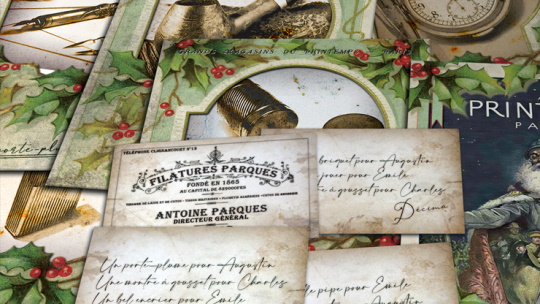 GRANDS MAGASINS DU PRINTEMPS PARIS
porte-pl
PRINT
PA
TÉLÉPHONE CLIGNANCOURT N°15
FILATURES PARQUES
FONDÉ EN 1865
ANTOINE PARQUES
DIRECTEUR GÉNÉRAL
briquet pour Augustin
jouer pour Emile
à gousset pour Charles
Décima
Un porte-plume pour Augustin
Une montre à gousset pour Charles
Un bel encrier pour Emile
pipe pour Emile
pour Augustin